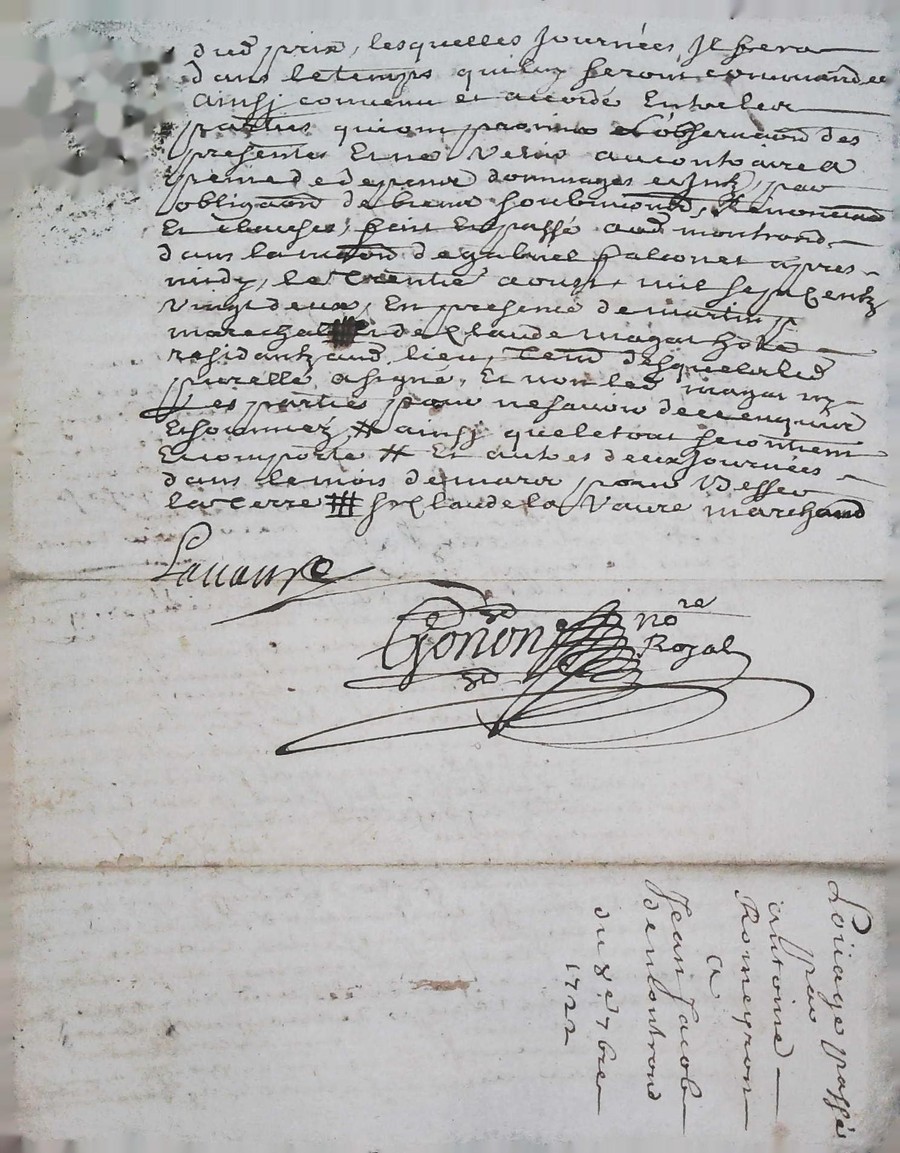 dud prix, lesquelles Journées Jl fera
dans letemps quiluy seront commandee
ainsj convenu et accordé Entreles
parties quiont promis l'observaon des
presentes Et ne Venir aucontraire a
peine de despens dommages et Intz, par
obligaon de biens soubmons, Renonciaons
Et clauses, fait Et passé aud montrond
dans lamaison degabriel falconet apres
midy, le trentie aoust, mil sept centz
Vingt deux, En presence de martin
marechal et de Claude magat hoste
residantz aud lieu,
a signé, Et non led magat ny
les parties pour nesavoir dece enquis
Et sommez # ainsj queletout se contient
Et comporte # Et autres deux Journées
dans lemois demars pour
la terre # Sr Claude la Vaure marchand
Lavaure
Gonon nore
Royal
Loüage passé
par
antoine
Romeyron
a
Jean Jacob
demontrond
du 8e 7bre
1722